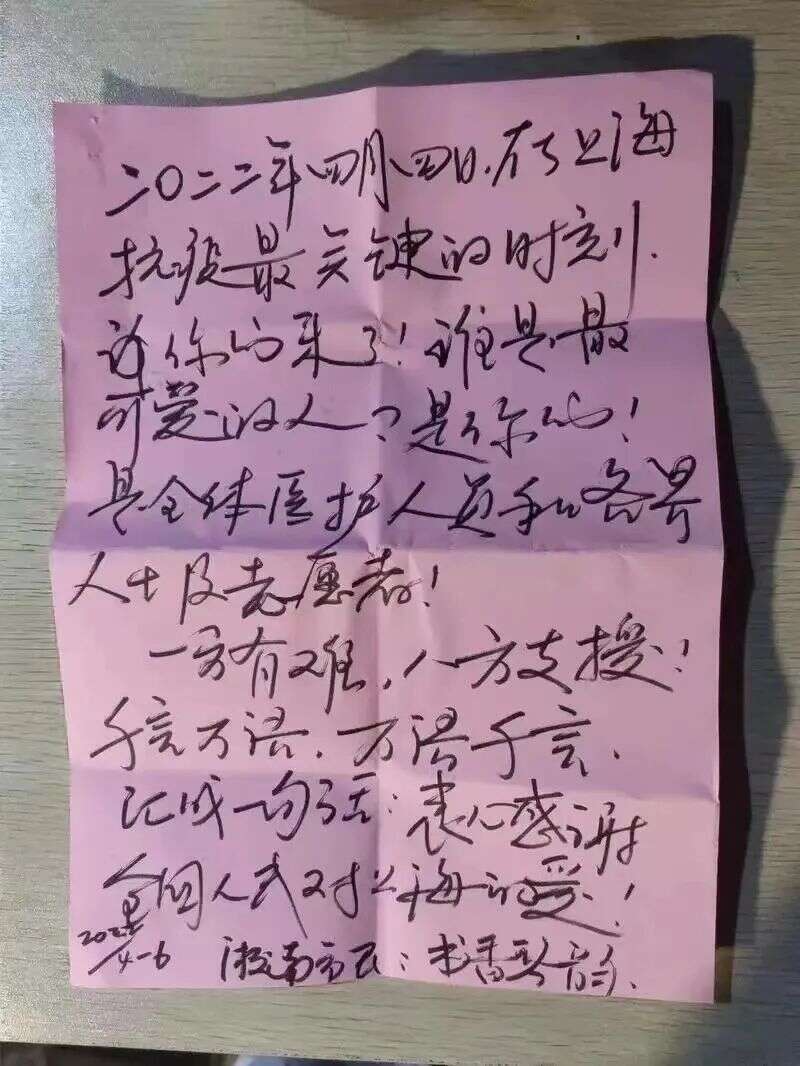 二〇二二年四月四日.在上海
抗疫最关键的时刻.
你们来了!谁是最
可爱的人?是你们!
是全体医护人员和各界
人士及志愿者!
一方有难,八方支援!
千言万语,万语千言,
汇成一句话:衷心感谢
全国人民对上海的爱!
2022
4-6
市民:书香